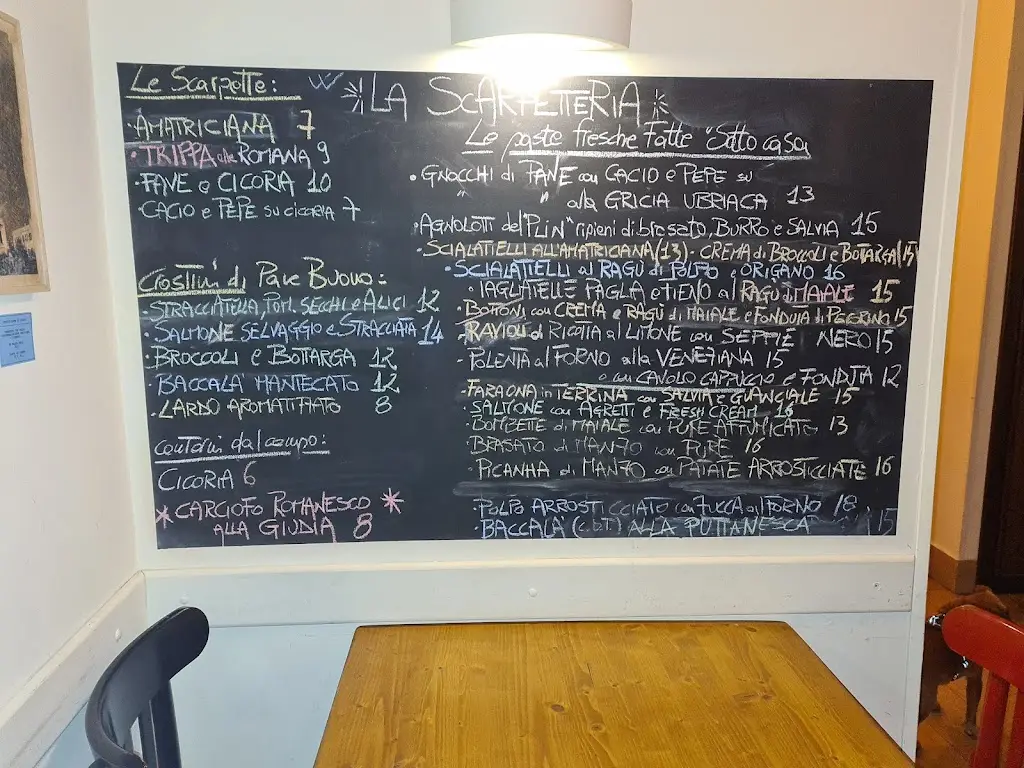 Le Scarpette:
·AMATRICIANA 7
·TRIPPA alla ROMANA 9
·FAVE e CICORIA 10
·CACIO e PEPE su cicoria 7
Crostini di Pane Buono:
·STRACCIATELLA, POM. SECCHI e ALICI 12
·SALMONE SELVAGGIO e STRACCIATA 14
·BROCCOLI e BOTTARGA 12
·BACCALA MANTECATO 12
·LARDO AROMATIZZATO 8
contorni dal campo:
CICORIA 6
*CARCIOFO ROMANESCO*
ALLA GIUDIA 8
W LA SCARPETTERIA
Le paste fresche fatte "Sotto casa
·GNOCCHI di PANE con CACIO e PEPE su
" " alla GRICIA UBRIACA 13
·AGNOLOTTI del "PLIN" ripieni di brasato, BURRO e SALVIA 15
·SCIALATIELLI ALL'AMATRICIANA (13)- CREMA di BROCCOLI e BOTTARGA (15)
·SCIALATIELLI al RAGÙ di POLPO e ORIGANO 16
·TAGLIATELLE PAGLIA e FIENO al RAGÙ di MAIALE 15
·BOTTONI con CREMA e RAGÙ di MAIALE e FONDUTA di PECORINO 15
·RAVIOLI di RICOTTA al LIMONE con SEPPIE NERO 15
·POLENTA al FORNO alla VENEZIANA 15
o con CAVOLO CAPPUCCIO e FONDUTA 12
·FARAONA in TERRINA con SALVIA e GUANCIALE 15
·SALMONE con AGRETTI e FRESH CREAM 16
·BOMBETTE di MAIALE con PURE AFFUMICATO 13
·BRASATO di MANZO con PURE 16
·PICANHA di MANZO con PATATE ARROSTICCIATE 16
·POLPO ARROSTICCIATO con ZUCCA al FORNO 18
·BACCALA (c.b.T.) ALLA PUTTANESCA 15